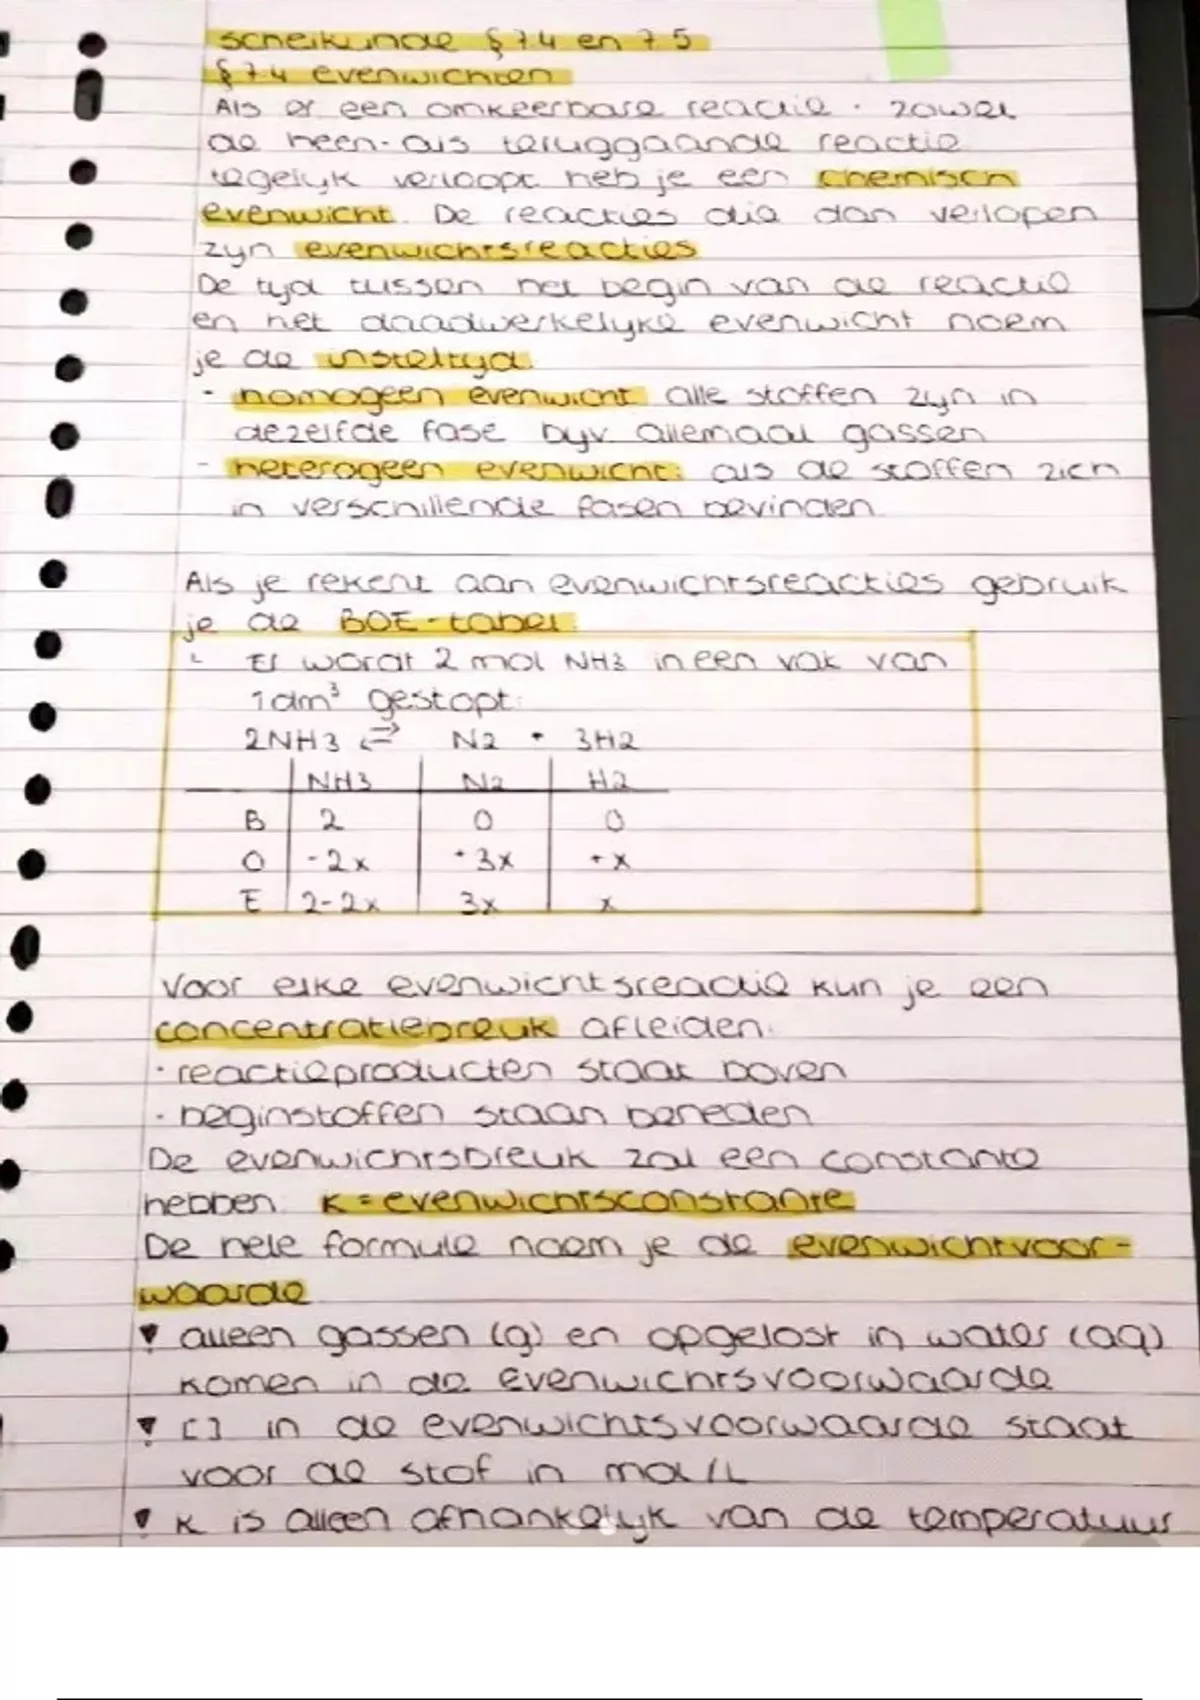 scheikunde § 7.4 en 7.5
§ 7.4 evenwichten
Als er een omkeerbare reactie. zowel
de heen- als teruggaande reactie
tegelijk verloopt heb je een chemisch
evenwicht. De reacties die dan verlopen
zijn evenwichtsreacties
De tijd tussen het begin van de reactie
en het daadwerkelijke evenwicht noem
je de insteltijd.
- homogeen evenwicht alle stoffen zijn in
dezelfde fase bijv. allemaal gassen
- heterogeen evenwicht: als de stoffen zich
in verschillende fasen bevinden
Als je rekent aan evenwichtsreacties gebruik
je de BOE-tabel:
Er wordt 2 mol NH3 in een vat van
1 dm³ gestopt:
2NH3 ⇌ N2 + 3H2
NH3 N2 H2
B 2 0 0
O -2x +3x +x
E 2-2x 3x x
Voor elke evenwichtsreactie kun je een
concentratiebreuk afleiden:
· reactieproducten staat boven
· beginstoffen staan beneden
De evenwichtsbreuk zal een constante
hebben. K = evenwichtsconstante
De hele formule noem je de evenwichtvoor-
waarde
! alleen gassen (g) en opgelost in water (aq)
komen in de evenwichtsvoorwaarde
! [ ] in de evenwichtsvoorwaarde staat
voor de stof in mol/L
! K is alleen afhankelijk van de temperatuur